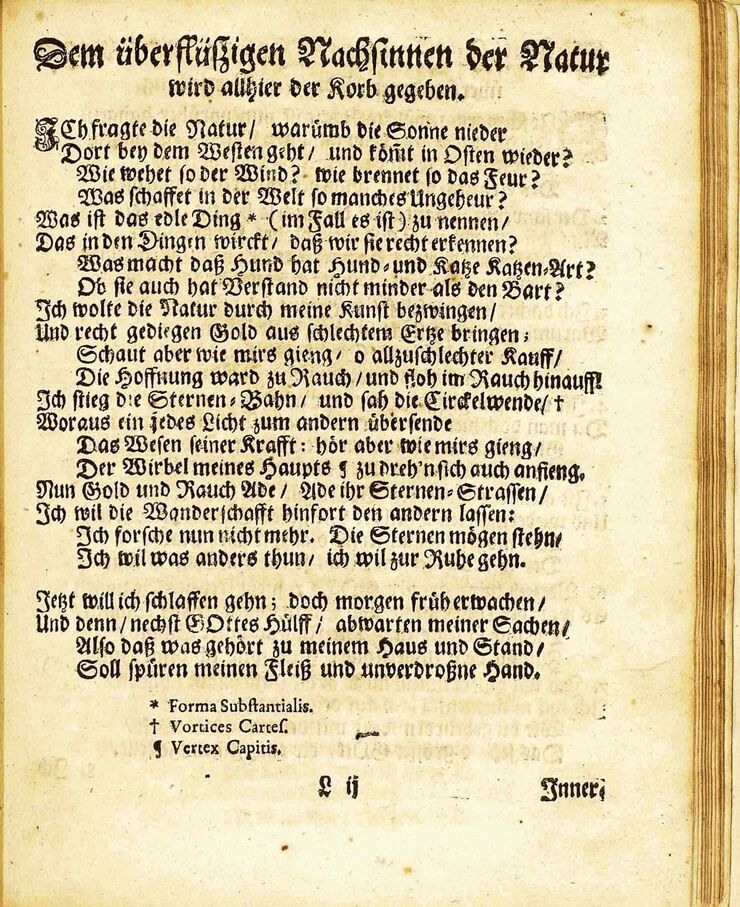 Dem überflüßigen Nachsinnen der Natur
wird allhier der Korb gegeben.
ICh fragte die Natur/ warümb die Sonne nieder
Dort bey dem Westen geht/ und köm̃t in Osten wieder?
Wie wehet so der Wind? wie brennet so das Feur?
Was schaffet in der Welt so manches Ungeheur?
Was ist das edle Ding * (im Fall es ist) zu nennen/
Das in den Dingen wirckt/ daß wir sie recht erkennen?
Was macht daß Hund hat Hund- und Katze Katzen-Art?
Ob sie auch hat Verstand nicht minder als den Bart?
Ich wolte die Natur durch meine Kunst bezwingen/
Und recht gediegen Gold aus schlechtem Ertze bringen;
Schaut aber wie mirs gieng/ o allzuschlechter Kauff/
Die Hoffnung ward zu Rauch/ und floh im Rauch hinauff!
Ich stieg die Sternen-Bahn/ und sah die Circkelwende/ †
Woraus ein jedes Licht zum andern übersende
Das Wesen seiner Krafft: hör aber wie mirs gieng/
Der Wirbel meines Haupts ¶ zu dreh'n sich auch anfieng.
Nun Gold und Rauch Ade/ Ade ihr Sternen-Strassen/
Ich wil die Wanderschafft hinfort den andern lassen:
Ich forsche nun nicht mehr. Die Sternen mögen stehn/
Ich wil was anders thun/ ich wil zur Ruhe gehn.
Jetzt will ich schlaffen gehn; doch morgen früh erwachen/
Und denn/ nechst GOttes Hülff/ abwarten meiner Sachen/
Also daß was gehört zu meinem Haus und Stand/
Soll spüren meinen Fleiß und unverdroßne Hand.
* Forma Substantialis.
† Vortices Cartes.
¶ Vertex Capitis.
L ij
Inner-